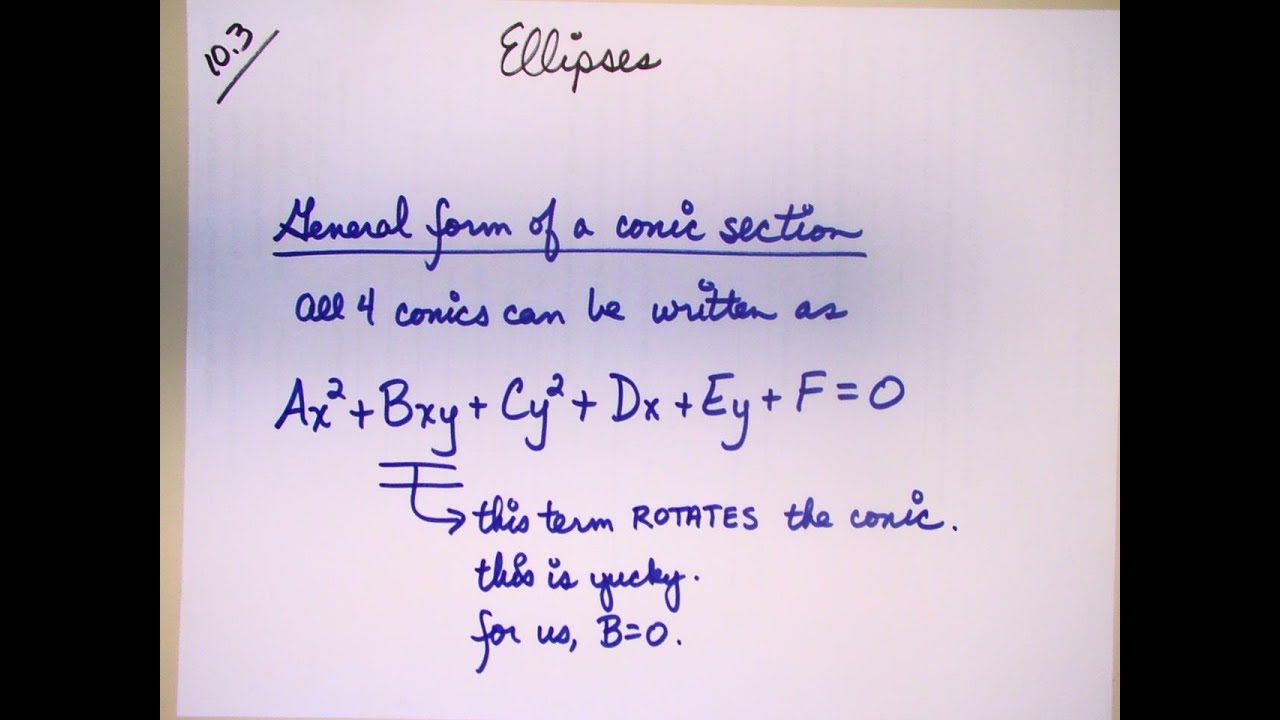 10.3
Ellipses
General form of a conic section
All 4 conics can be written as
Ax² + Bxy + Cy² + Dx + Ey + F = 0
this term ROTATES the conic.
this is yucky.
for us, B=0.